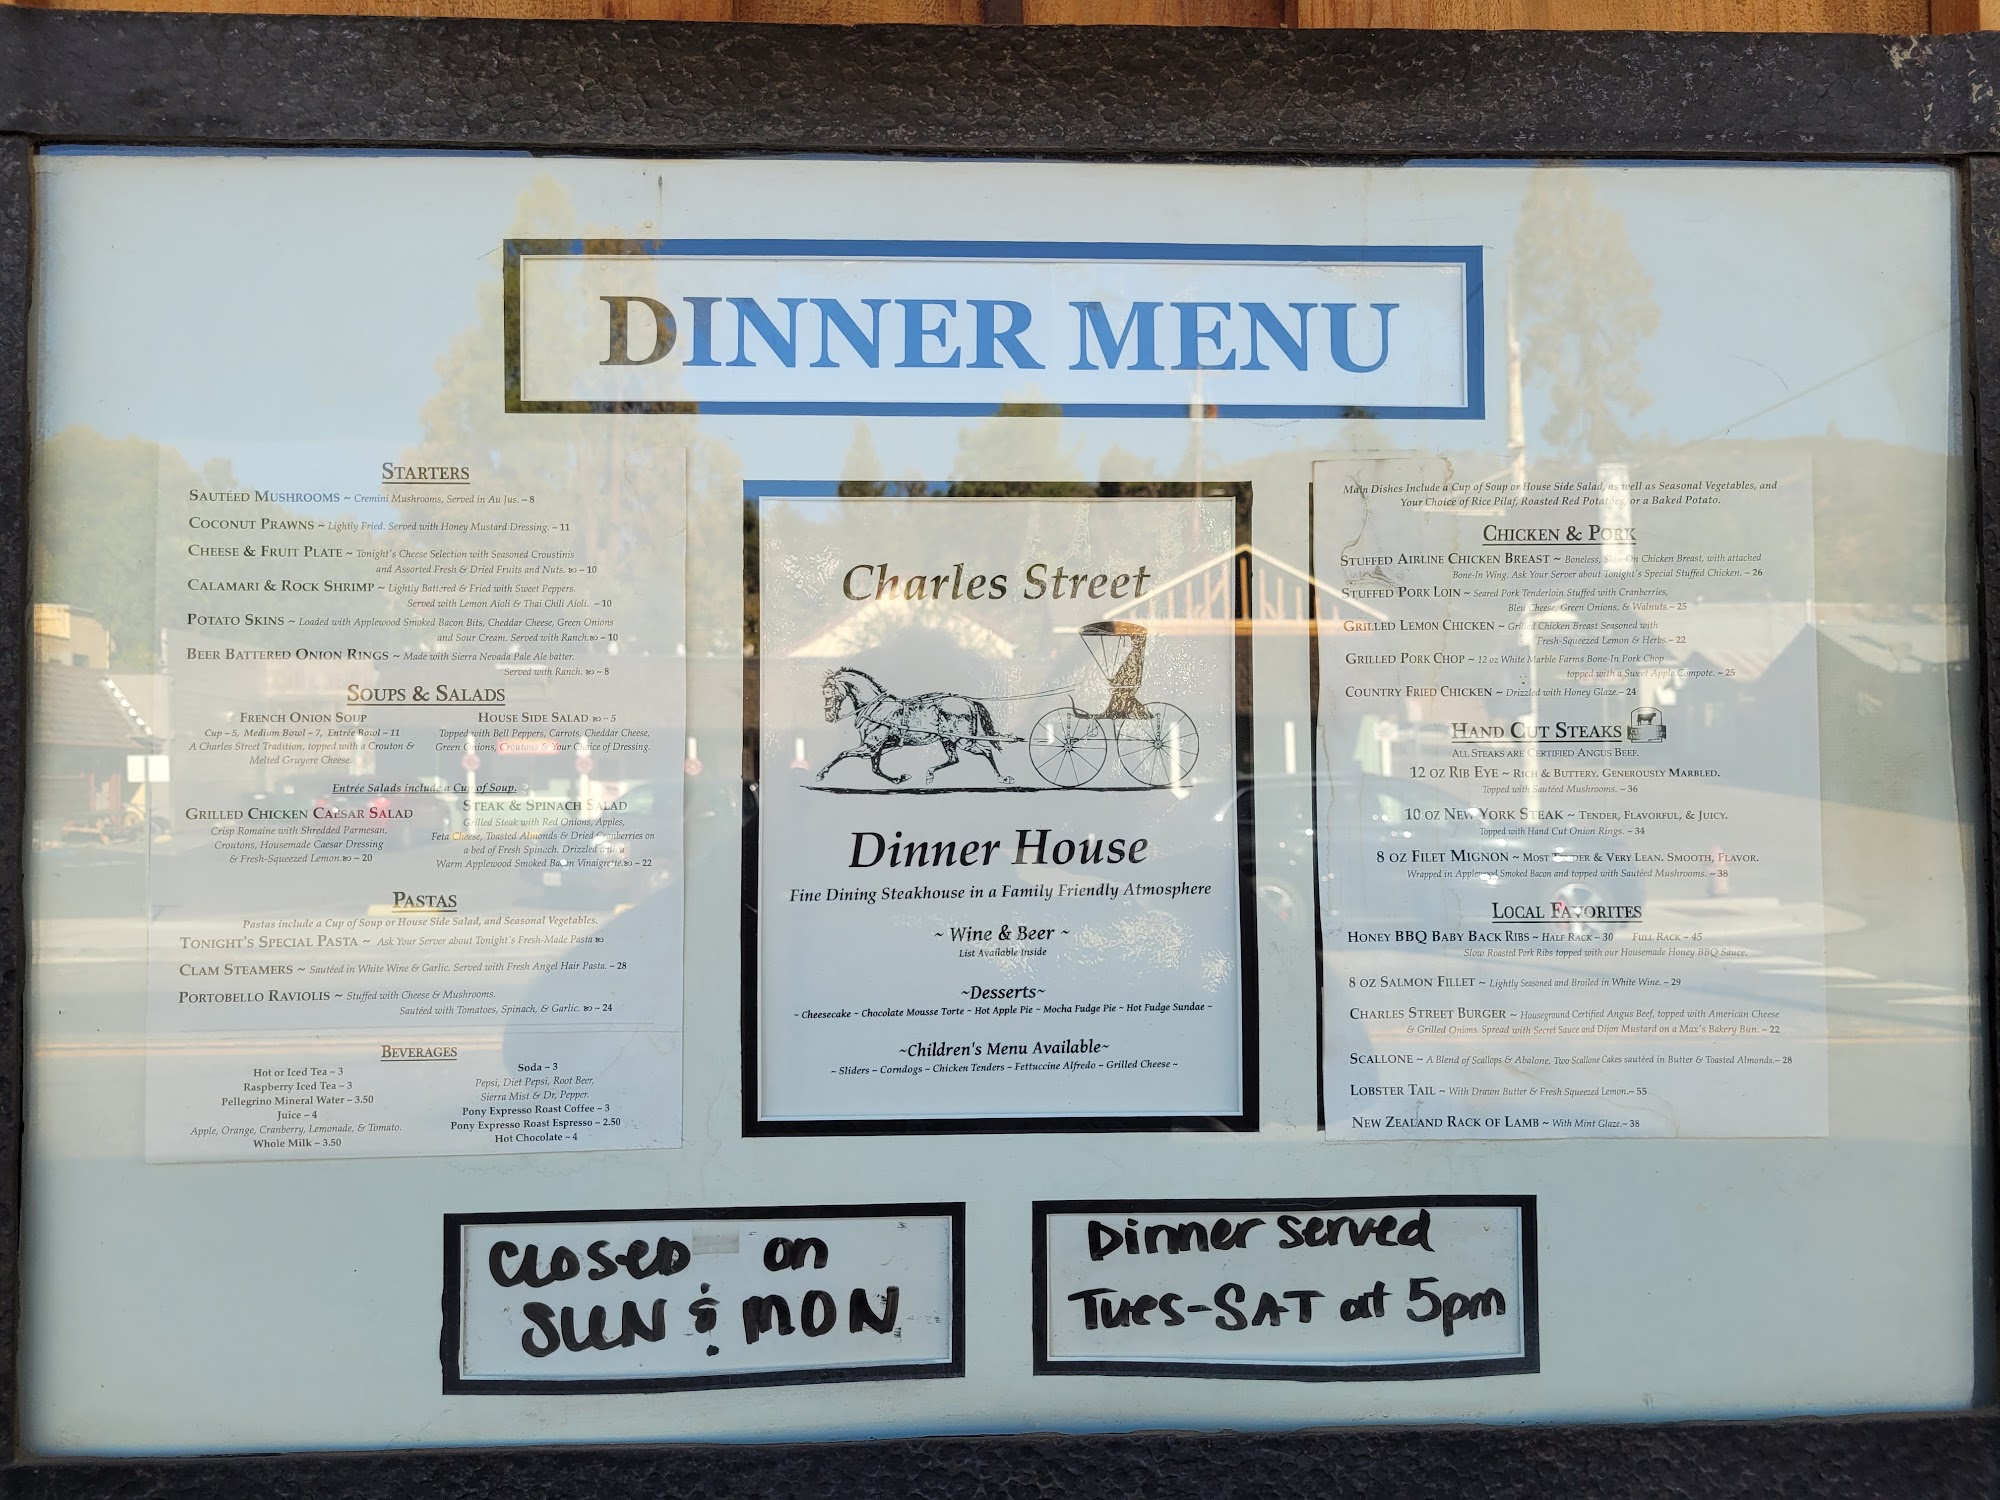 DINNER MENU
STARTERS
SAUTÉED MUSHROOMS ~ Cremini Mushrooms, Served in Au Jus. ~ 8
COCONUT PRAWNS ~ Lightly Fried. Served with Honey Mustard Dressing. ~ 11
CHEESE & FRUIT PLATE ~ Tonight's Cheese Selection with Seasoned Croustinis
and Assorted Fresh & Dried Fruits and Nuts. ~ 10
CALAMARI & ROCK SHRIMP ~ Lightly Battered & Fried with Sweet Peppers.
Served with Lemon Aioli & Thai Chili Aioli. ~ 10
POTATO SKINS ~ Loaded with Applewood Smoked Bacon Bits, Cheddar Cheese, Green Onions
and Sour Cream. Served with Ranch. ~ 10
BEER BATTERED ONION RINGS ~ Made with Sierra Nevada Pale Ale batter.
Served with Ranch. ~ 8
SOUPS & SALADS
FRENCH ONION SOUP
Cup ~ 5, Medium Bowl ~ 7, Entrée Bowl ~ 11
A Charles Street Tradition, topped with a Crouton &
Melted Gruyere Cheese.
HOUSE SIDE SALAD ~ 5
Topped with Bell Peppers, Carrots, Cheddar Cheese,
Green Onions, Croutons & Your Choice of Dressing.
Entrée Salads include a Cup of Soup.
GRILLED CHICKEN CAESAR SALAD
Crisp Romaine with Shredded Parmesan,
Croutons, Housemade Caesar Dressing
& Fresh-Squeezed Lemon. ~ 20
STEAK & SPINACH SALAD
Grilled Steak with Red Onions, Apples,
Feta Cheese, Toasted Almonds & Dried Cranberries on
a bed of Fresh Spinach. Drizzled with a
Warm Applewood Smoked Bacon Vinaigrette. ~ 22
PASTAS
Pastas include a Cup of Soup or House Side Salad, and Seasonal Vegetables.
TONIGHT'S SPECIAL PASTA ~ Ask Your Server about Tonight's Fresh-Made Pasta
CLAM STEAMERS ~ Sautéed in White Wine & Garlic. Served with Fresh Angel Hair Pasta. ~ 28
PORTOBELLO RAVIOLIS ~ Stuffed with Cheese & Mushrooms.
Sautéed with Tomatoes, Spinach, & Garlic. ~ 24
BEVERAGES
Hot or Iced Tea ~ 3
Raspberry Iced Tea ~ 3
Pellegrino Mineral Water ~ 3.50
Juice ~ 4
Apple, Orange, Cranberry, Lemonade, & Tomato.
Whole Milk ~ 3.50
Soda ~ 3
Pepsi, Diet Pepsi, Root Beer,
Sierra Mist & Dr, Pepper.
Pony Expresso Roast Coffee ~ 3
Pony Expresso Roast Espresso ~ 2.50
Hot Chocolate ~ 4
Charles Street
Dinner House
Fine Dining Steakhouse in a Family Friendly Atmosphere
~ Wine & Beer ~
List Available Inside
~Desserts~
~ Cheesecake ~ Chocolate Mousse Torte ~ Hot Apple Pie ~ Mocha Fudge Pie ~ Hot Fudge Sundae ~
~Children's Menu Available~
~ Sliders ~ Corndogs ~ Chicken Tenders ~ Fettuccine Alfredo ~ Grilled Cheese ~
Main Dishes Include a Cup of Soup or House Side Salad, as well as Seasonal Vegetables, and
Your Choice of Rice Pilaf, Roasted Red Potatoes, or a Baked Potato.
CHICKEN & PORK
STUFFED AIRLINE CHICKEN BREAST ~ Boneless, Skin-On Chicken Breast, with attached
Bone-In Wing. Ask Your Server about Tonight's Special Stuffed Chicken. ~ 26
STUFFED PORK LOIN ~ Seared Pork Tenderloin Stuffed with Cranberries,
Bleu Cheese, Green Onions, & Walnuts.~ 25
GRILLED LEMON CHICKEN ~ Grilled Chicken Breast Seasoned with
Fresh-Squeezed Lemon & Herbs.~ 22
GRILLED PORK CHOP ~ 12 oz White Marble Farms Bone-In Pork Chop
topped with a Sweet Apple Compote. ~ 25
COUNTRY FRIED CHICKEN ~ Drizzled with Honey Glaze.~ 24
HAND CUT STEAKS
ALL STEAKS ARE CERTIFIED ANGUS BEEF.
12 OZ RIB EYE ~ RICH & BUTTERY. GENEROUSLY MARBLED.
Topped with Sautéed Mushrooms. ~ 36
10 OZ NEW YORK STEAK ~ TENDER, FLAVORFUL, & JUICY.
Topped with Hand Cut Onion Rings. ~ 34
8 OZ FILET MIGNON ~ MOST TENDER & VERY LEAN. SMOOTH, FLAVOR.
Wrapped in Applewood Smoked Bacon and topped with Sautéed Mushrooms. ~ 38
LOCAL FAVORITES
HONEY BBQ BABY BACK RIBS ~ HALF RACK ~ 30 FULL RACK ~ 45
Slow Roasted Pork Ribs topped with our Housemade Honey BBQ Sauce.
8 OZ SALMON FILLET ~ Lightly Seasoned and Broiled in White Wine. ~ 29
CHARLES STREET BURGER ~ Houseground Certified Angus Beef, topped with American Cheese
& Grilled Onions. Spread with Secret Sauce and Dijon Mustard on a Max's Bakery Bun. ~ 22
SCALLONE ~ A Blend of Scallops & Abalone. Two Scallone Cakes sautéed in Butter & Toasted Almonds.~ 28
LOBSTER TAIL ~ With Drawn Butter & Fresh Squeezed Lemon.~ 55
NEW ZEALAND RACK OF LAMB ~ With Mint Glaze.~ 38
CLOSED on
SUN & MON
Dinner served
Tues-SAT at 5pm